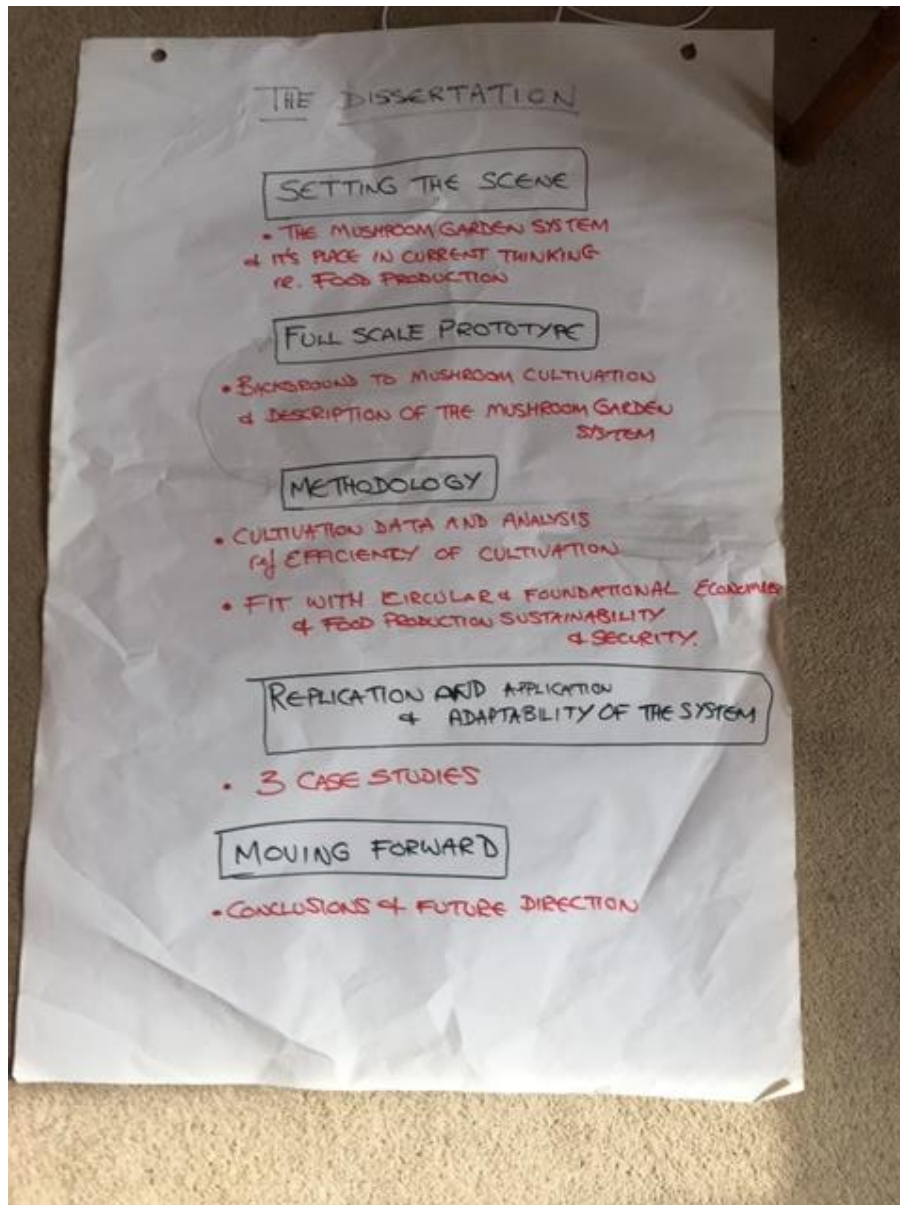 THE DISSERTATION
SETTING THE SCENE
• THE MUSHROOM GARDEN SYSTEM
& IT'S PLACE IN CURRENT THINKING
re. FOOD PRODUCTION
FULL SCALE PROTOTYPE
• BACKGROUND TO MUSHROOM CULTIVATION
& DESCRIPTION OF THE MUSHROOM GARDEN
SYSTEM
METHODOLOGY
• CULTIVATION DATA AND ANALYSIS
ref EFFICIENCY OF CULTIVATION
• FIT WITH CIRCULAR & FOUNDATIONAL ECONOMIES
& FOOD PRODUCTION SUSTAINABILITY
& SECURITY.
REPLICATION AND APPLICATION
& ADAPTABILITY OF THE SYSTEM
• 3 CASE STUDIES
MOVING FORWARD
• CONCLUSIONS & FUTURE DIRECTION